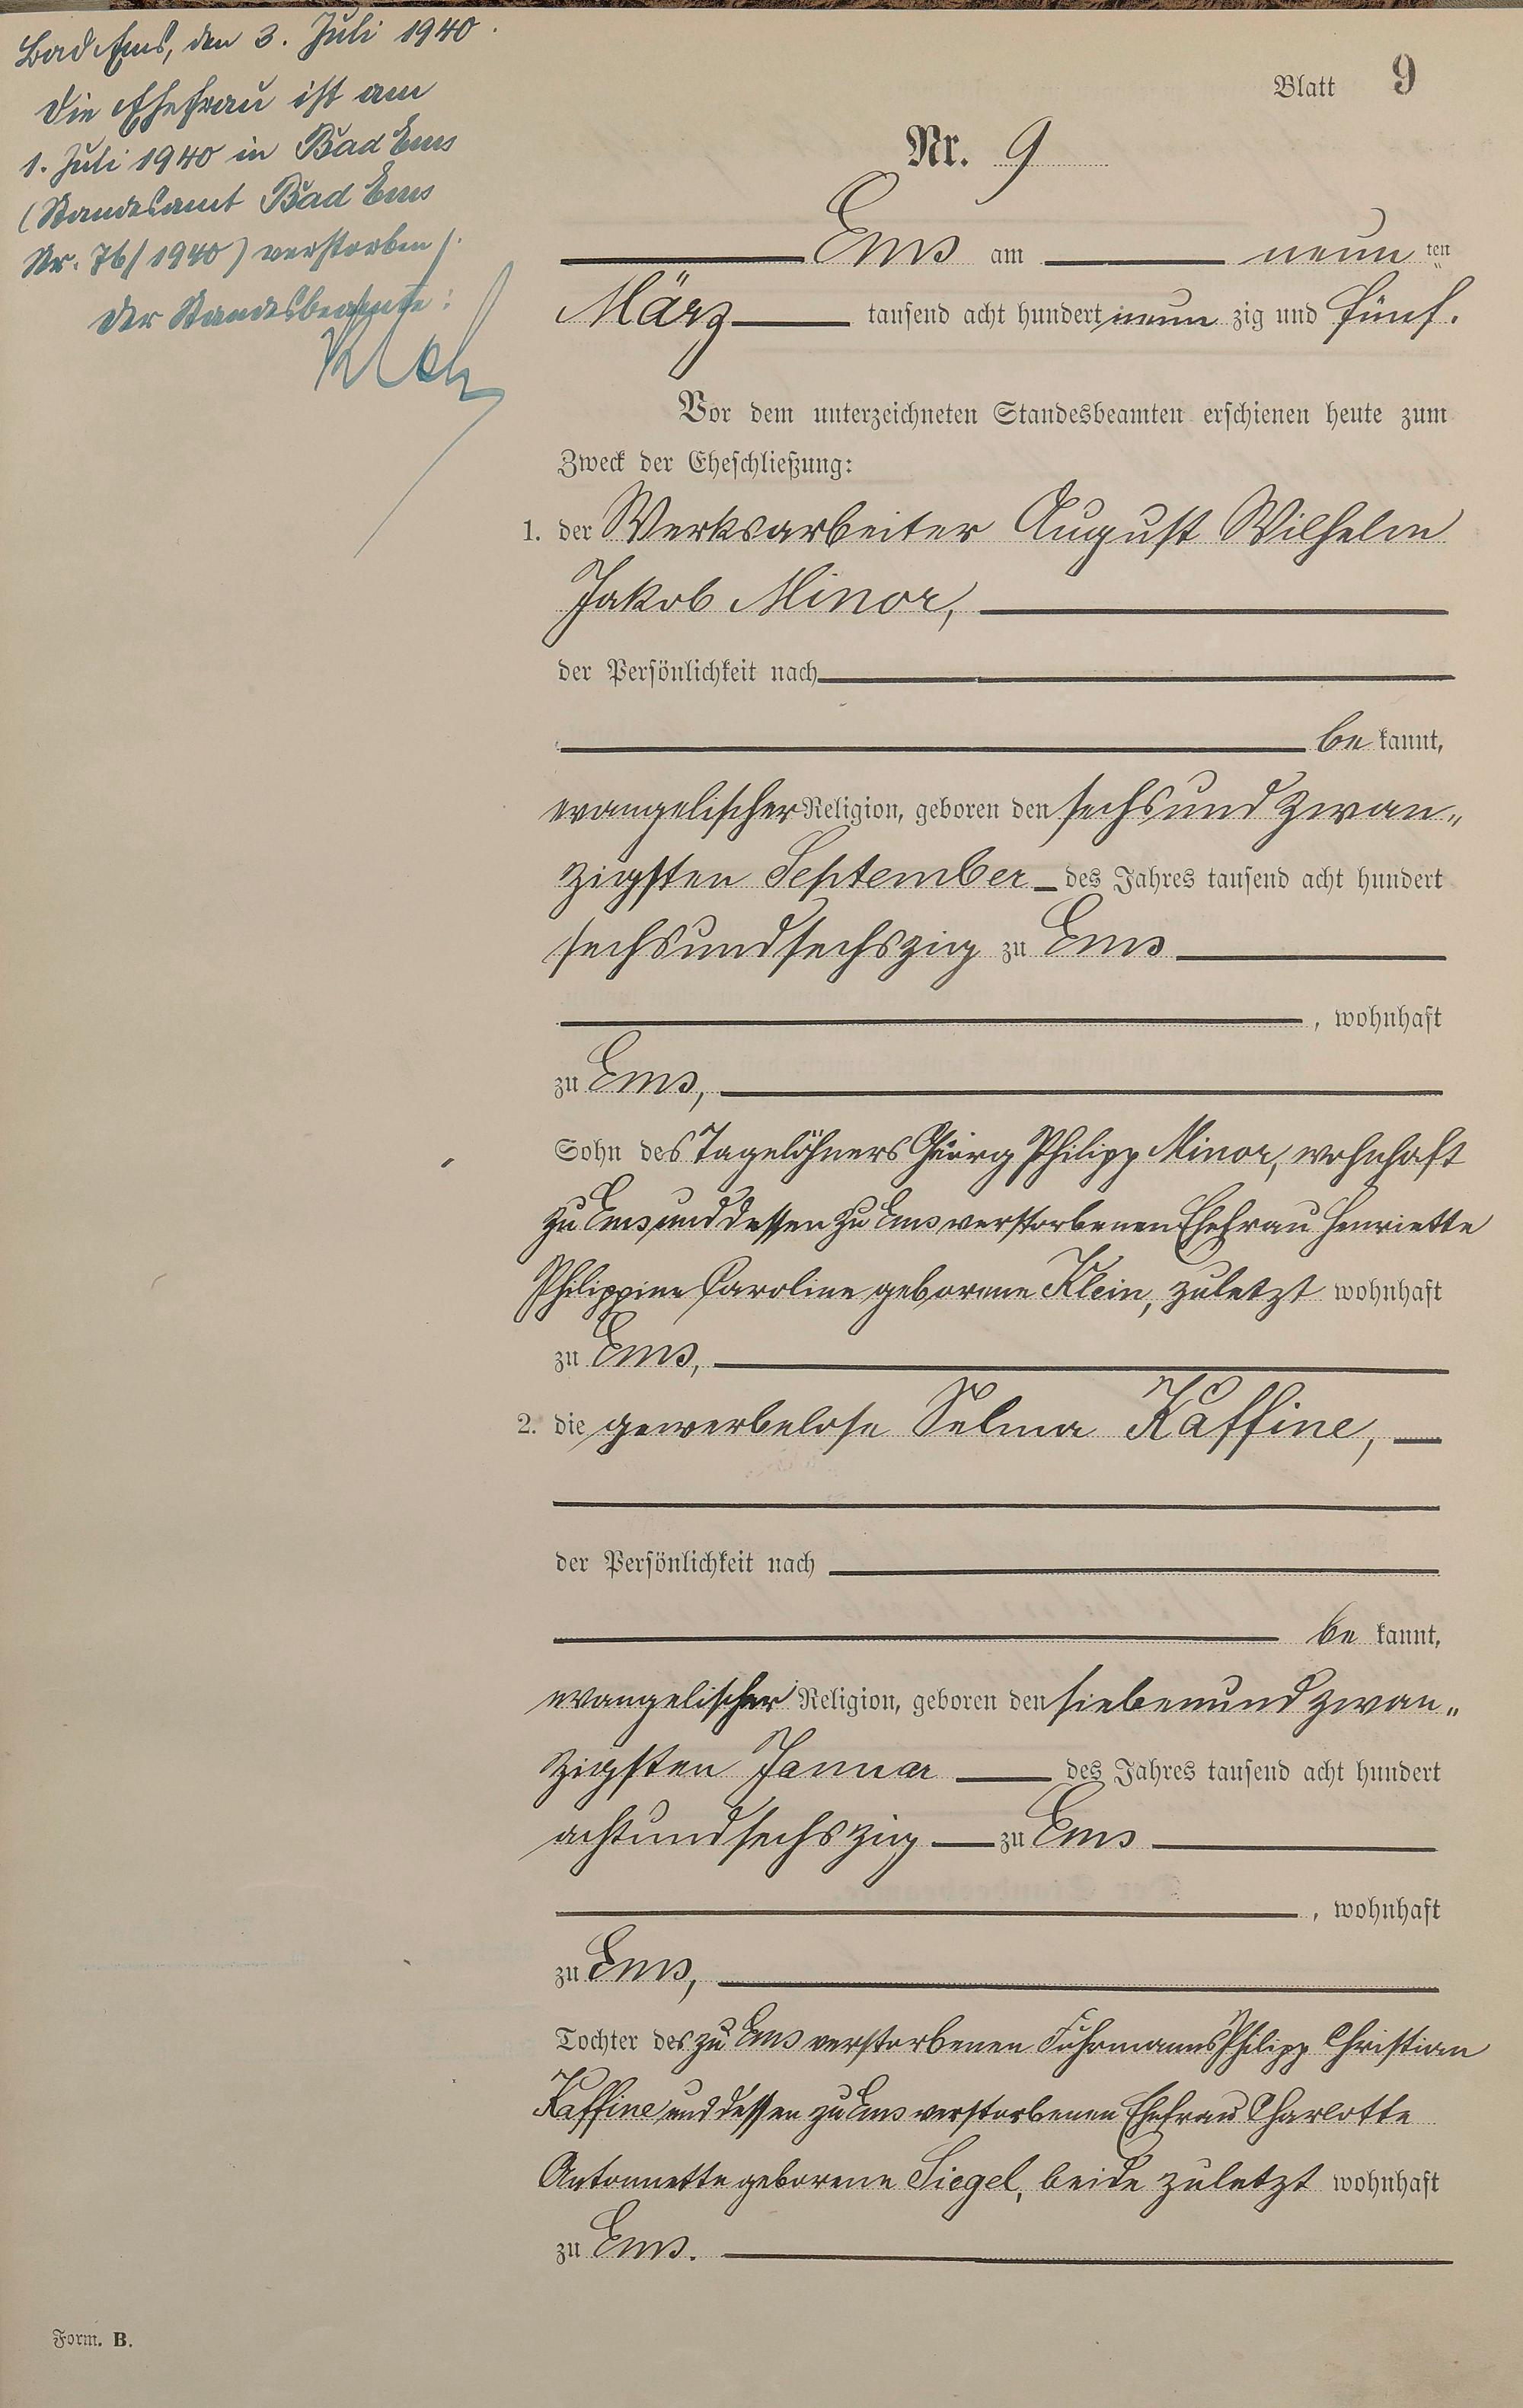 Bad Ems, den 3. Juli 1940.
Die Ehefrau ist am
1. Juli 1940 in Bad Ems
(Standesamt Bad Ems
Nr. 76/1940) verstorben /.
Der Standesbeamte:
Blatt 9
Nr. 9
Ems am neun ten
März tausend acht hundert neun zig und fünf.
Vor dem unterzeichneten Standesbeamten erschienen heute zum
Zweck der Eheschließung:
1. der Werksarbeiter August Wilhelm
Jakob Minor,
der Persönlichkeit nach
be kannt,
evangelischer Religion, geboren den sechsundzwan„
zigsten September des Jahres tausend acht hundert
sechsundsechszig zu Ems
, wohnhaft
zu Ems,
Sohn des Tagelöhners Georg Philipp Minor, wohnhaft
zu Ems und dessen zu Ems verstorbenen Ehefrau Henriette
Philippine Caroline geborene Klein, zuletzt wohnhaft
zu Ems,
2. die gewerbelose Selma Kaffine,
der Persönlichkeit nach
be kannt,
evangelischer Religion, geboren den siebenundzwan„
zigsten Januar des Jahres tausend acht hundert
achtundsechszig zu Ems
, wohnhaft
zu Ems,
Tochter des zu Ems verstorbenen Fuhrmanns Philipp Christian
Kaffine und dessen zu Ems verstorbenen Ehefrau Charlotte
Antonnette geborene Siegel, beide zuletzt wohnhaft
zu Ems.
Form. B.